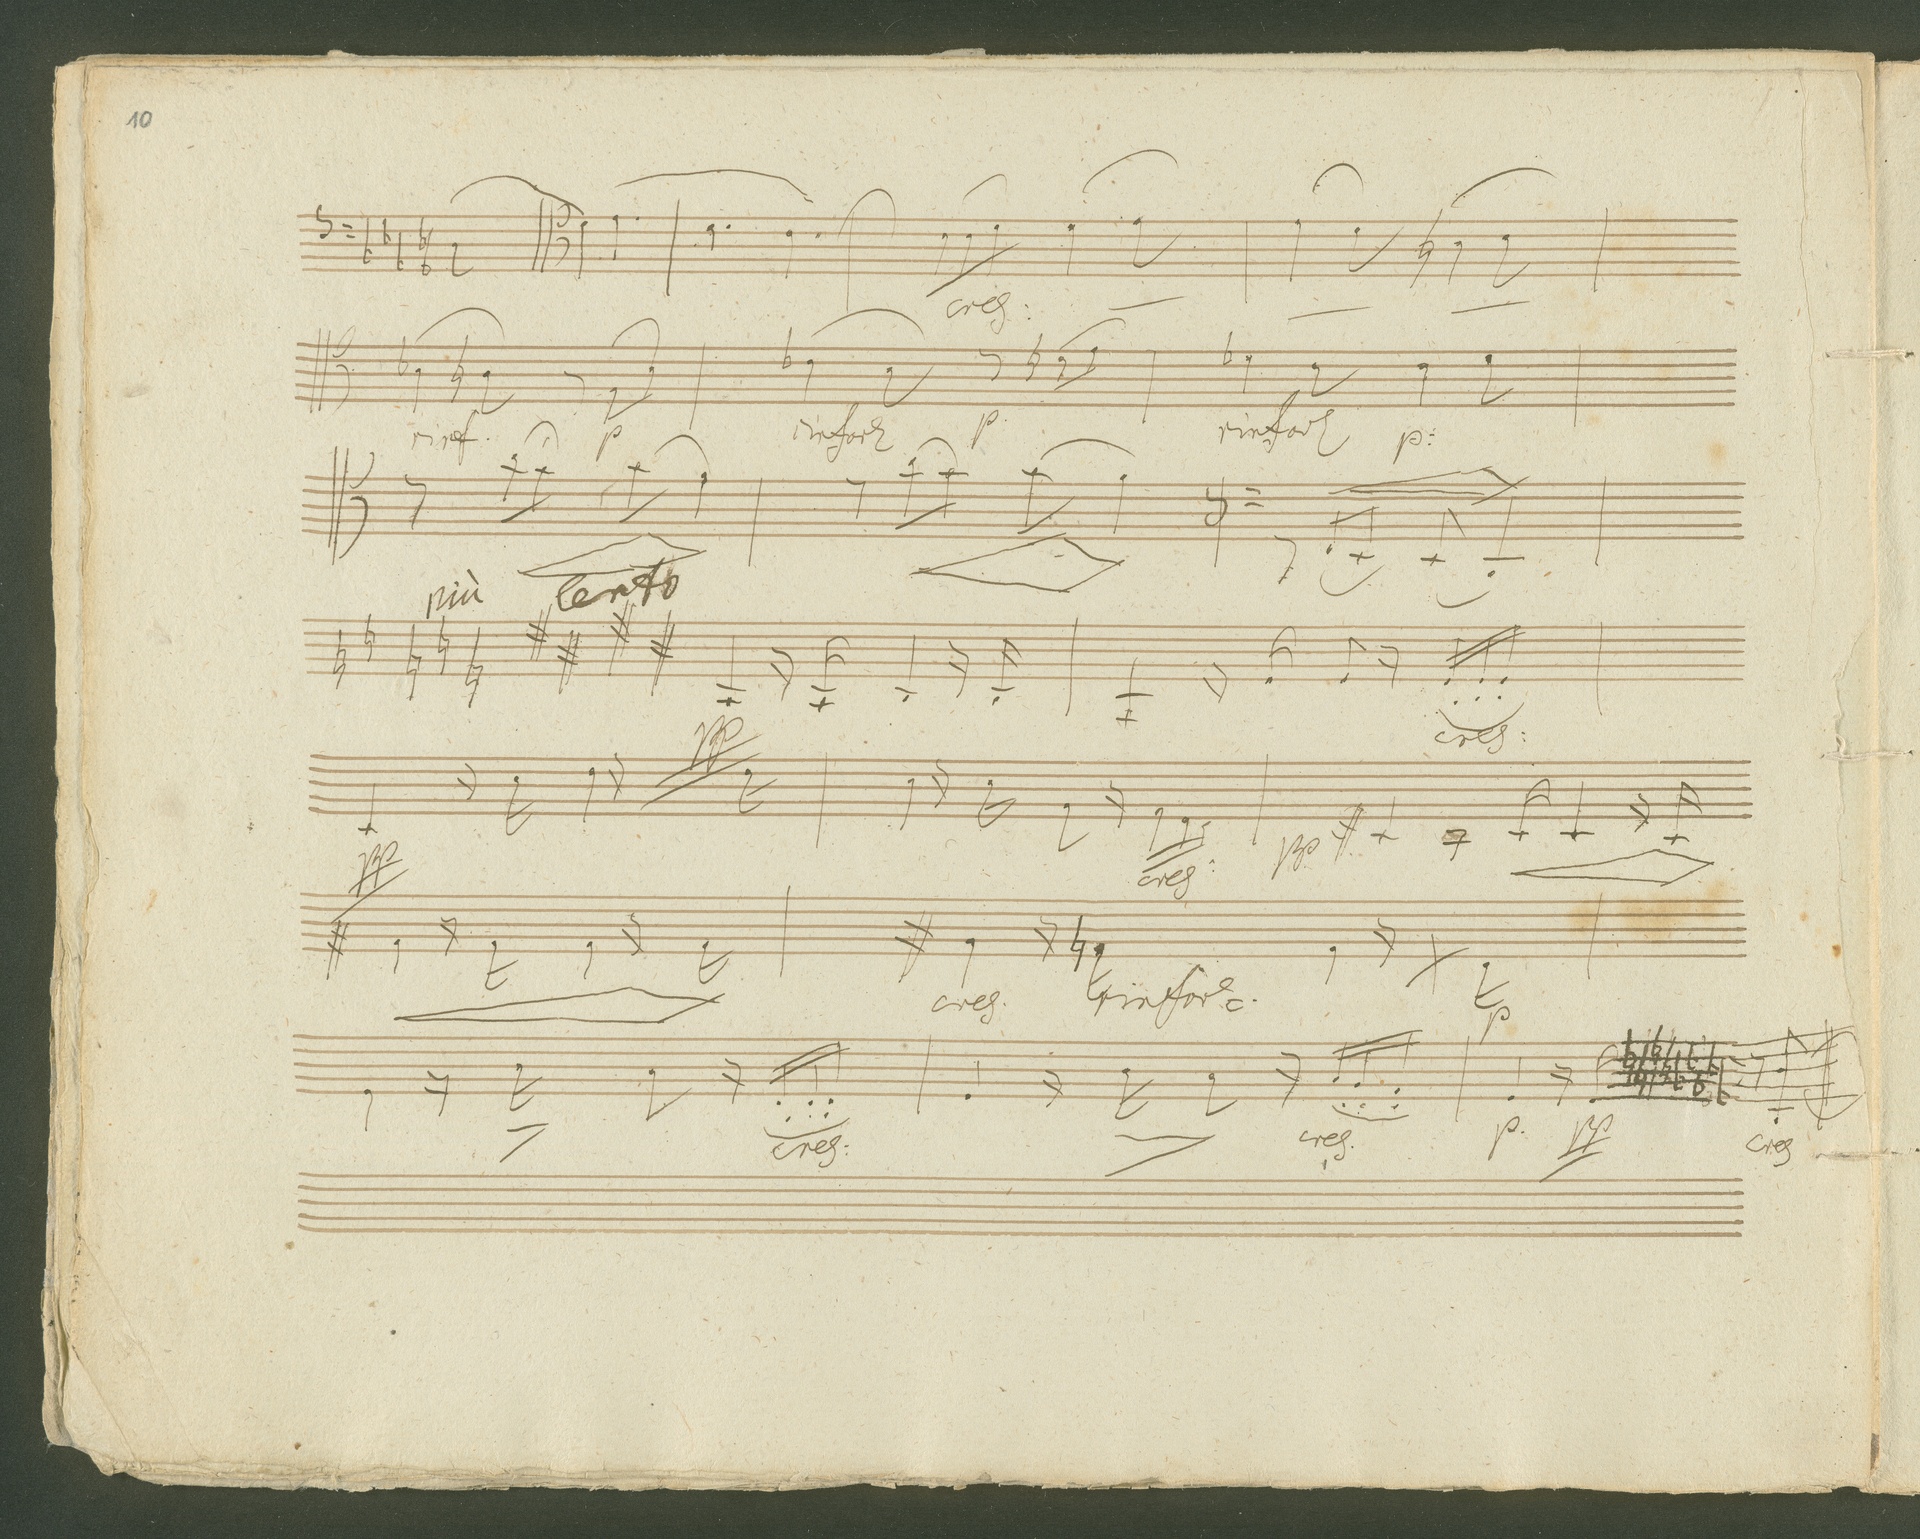 10
cres:
rinf. p rinforz p. rinforz p:
più lento
cres:
pp
cres: pp
pp
cres. rinforz. p
cres: cres. p. pp cres